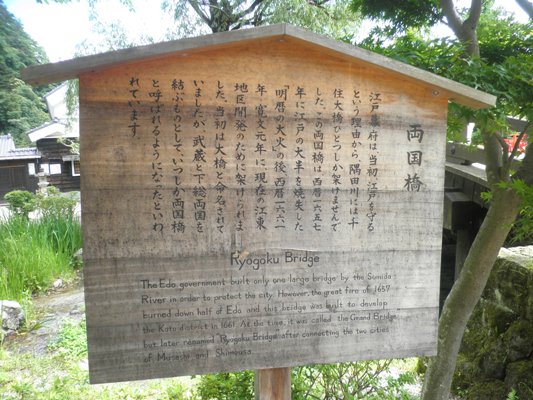 両国橋
江戸幕府は当初江戸を守る
という理由から、隅田川には千
住大橋ひとつしか架けませんで
した。この両国橋は西暦一六五七
年に江戸の大半を焼失した
「明暦の大火」の後、西暦一六六一
年、寛文元年に現在の江東
地区開発のために架けられま
した。当初は大橋と名付されて
いましたが、武蔵と下総両国を
結ぶものとしていつしか両国橋
と呼ばれるようになったといわ
れています。
Ryogoku Bridge
The Edo government built only one large bridge by the Sumida
River in order to protect the city. However, the great fire of 1657
burned down half of Edo and this bridge was built to develop
the Koto district in 1661. At the time, it was called the Grand Bridge,
but later renamed "Ryogoku Bridge" after connecting the two cities
of Musashi and Shimousa.